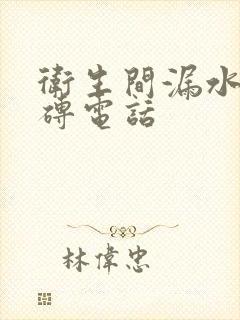 衛生間漏水
磚電話
林偉忠